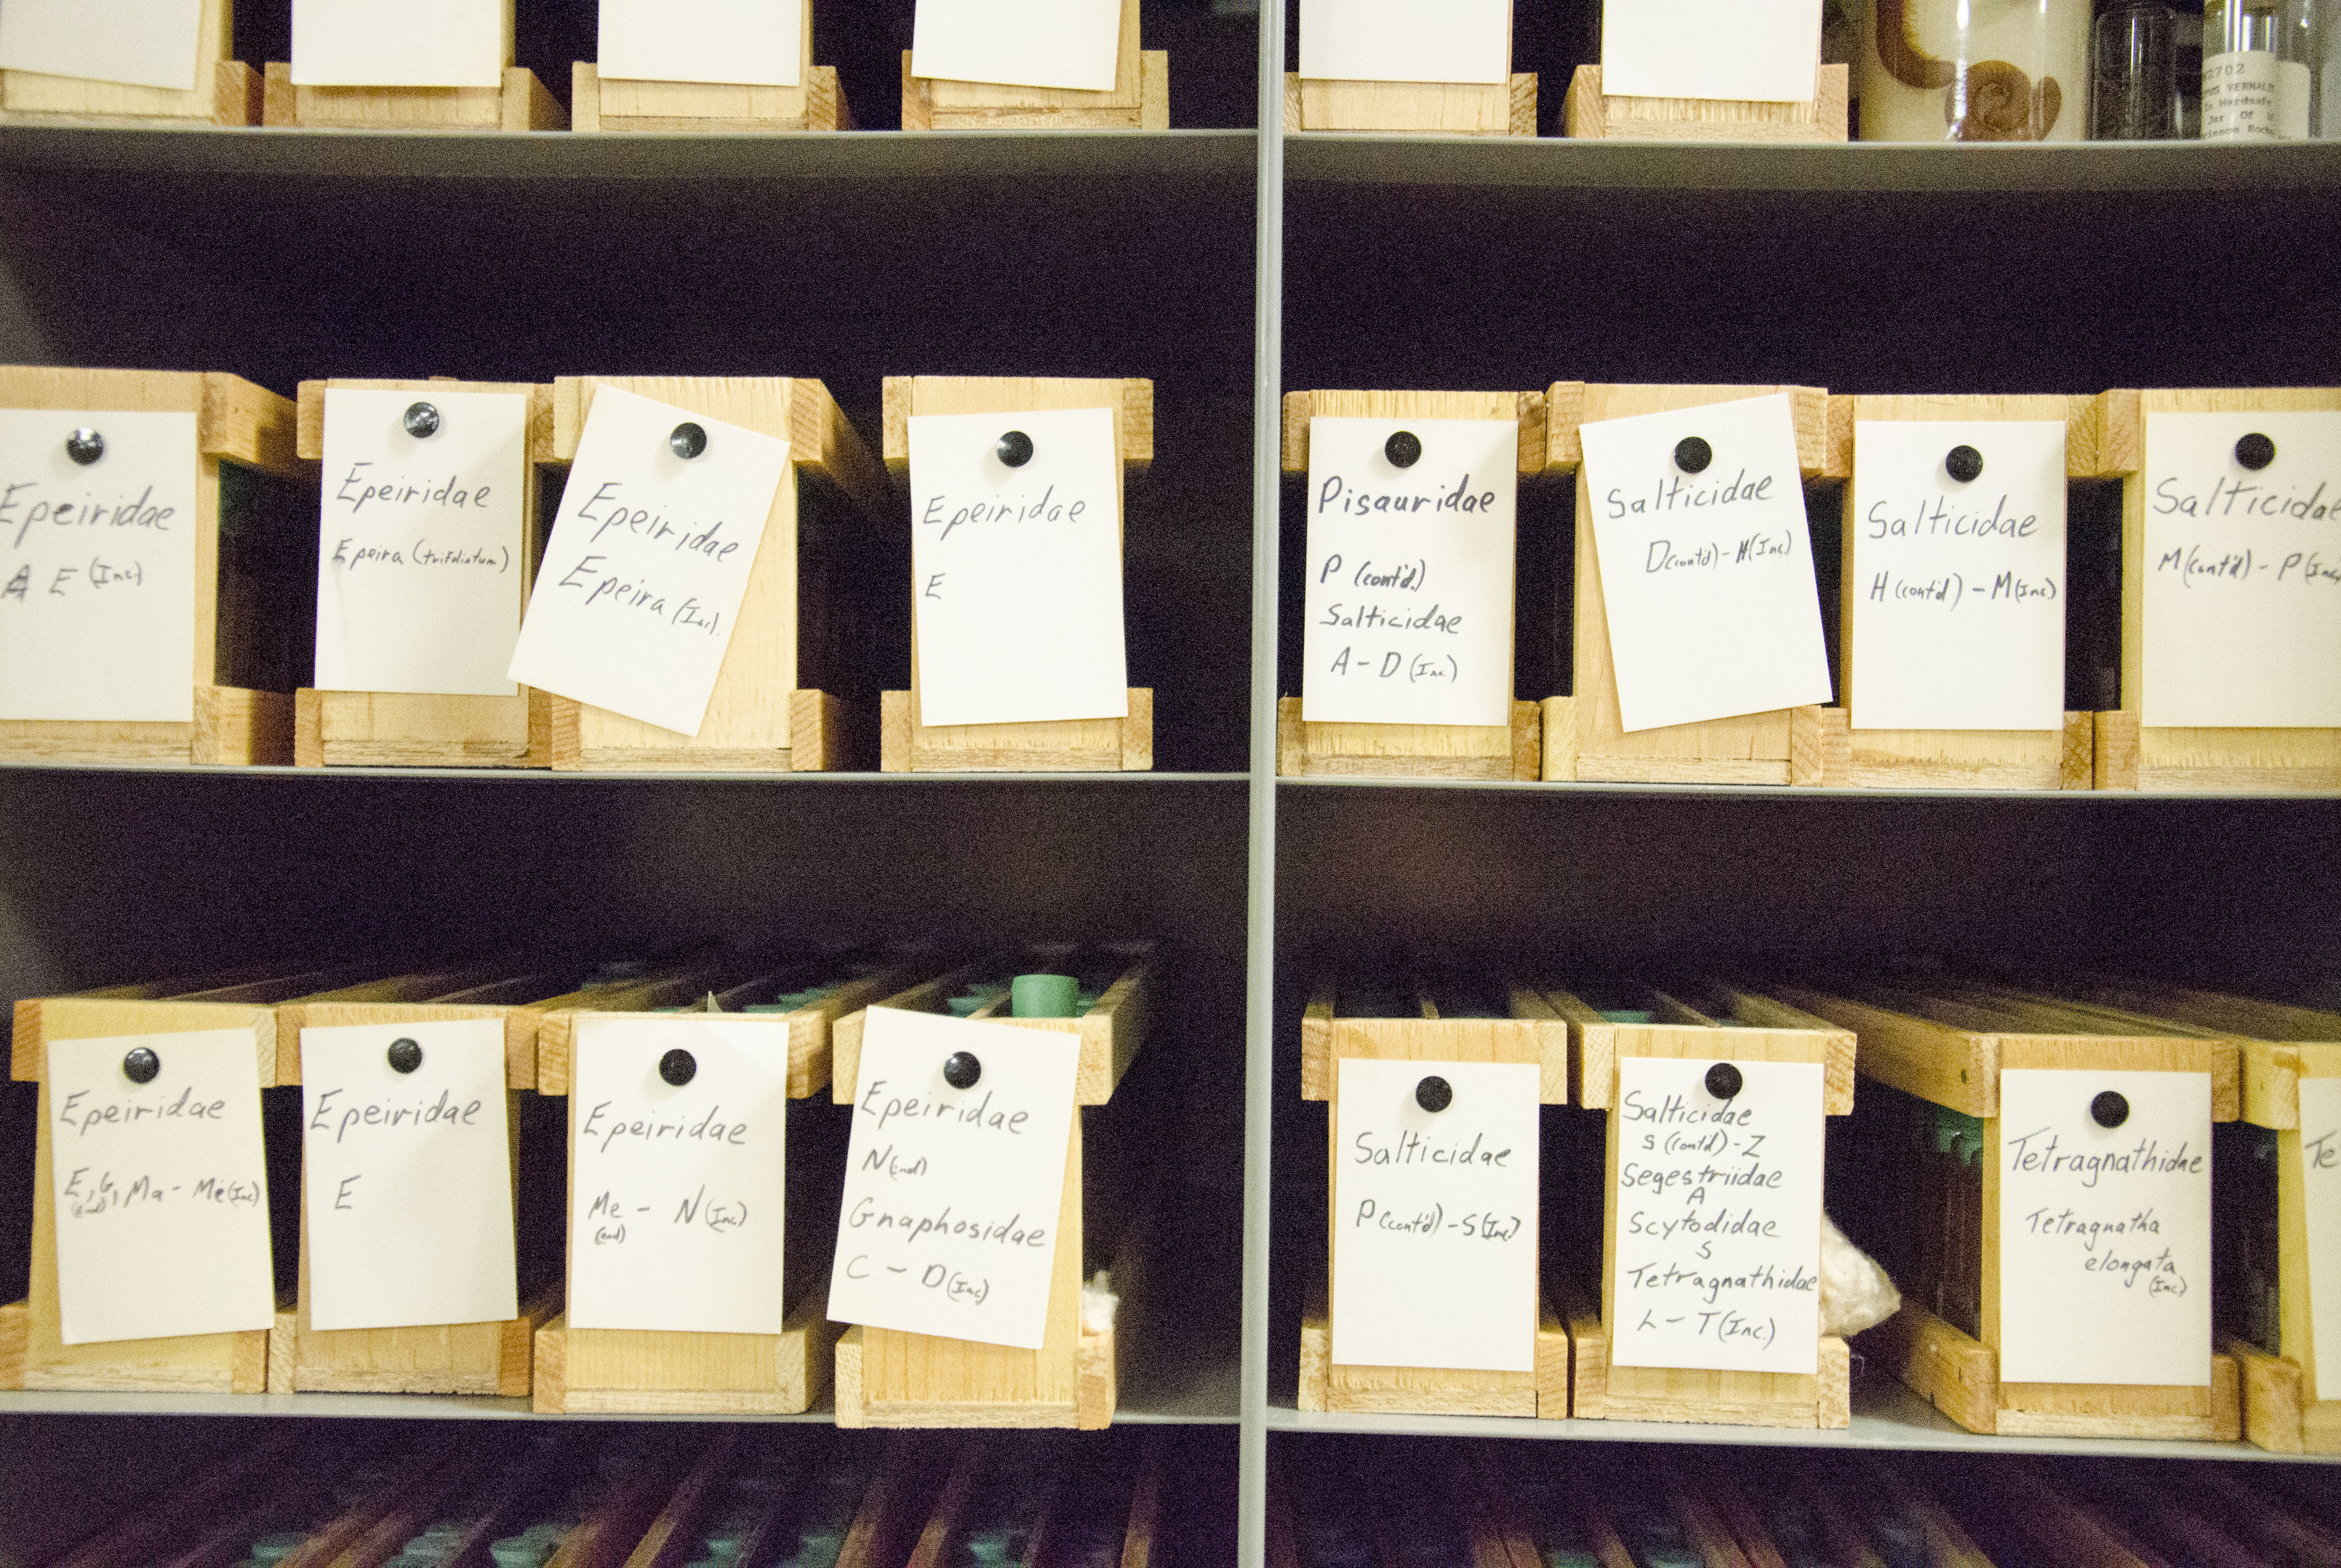 2702
VERNAL
Hardsaf
Jar Of
cience Roch
Epeiridae
A E (Inc.)
Epeiridae
Epeira (trifoliatum)
Epeiridae
Epeira (Inc).
Epeiridae
E
Pisauridae
P (cont'd.)
Salticidae
A - D (Inc.)
Salticidae
D(cont'd) - H(Inc.)
Salticidae
H (cont'd) - M(Inc.)
Salticidae
M(cont'd) - P(Inc.)
Epeiridae
E, G, Ma - Me(Inc)
(end)
Epeiridae
E
Epeiridae
Me - N(Inc)
(end)
Epeiridae
N(end)
Gnaphosidae
C - D(Inc)
Salticidae
P(cont'd) - S(Inc)
Salticidae
S (cont'd) - Z
Segestriidae
A
Scytodidae
S
Tetragnathidae
L - T(Inc.)
Tetragnathidae
Tetragnatha
elongata
(Inc)
Te